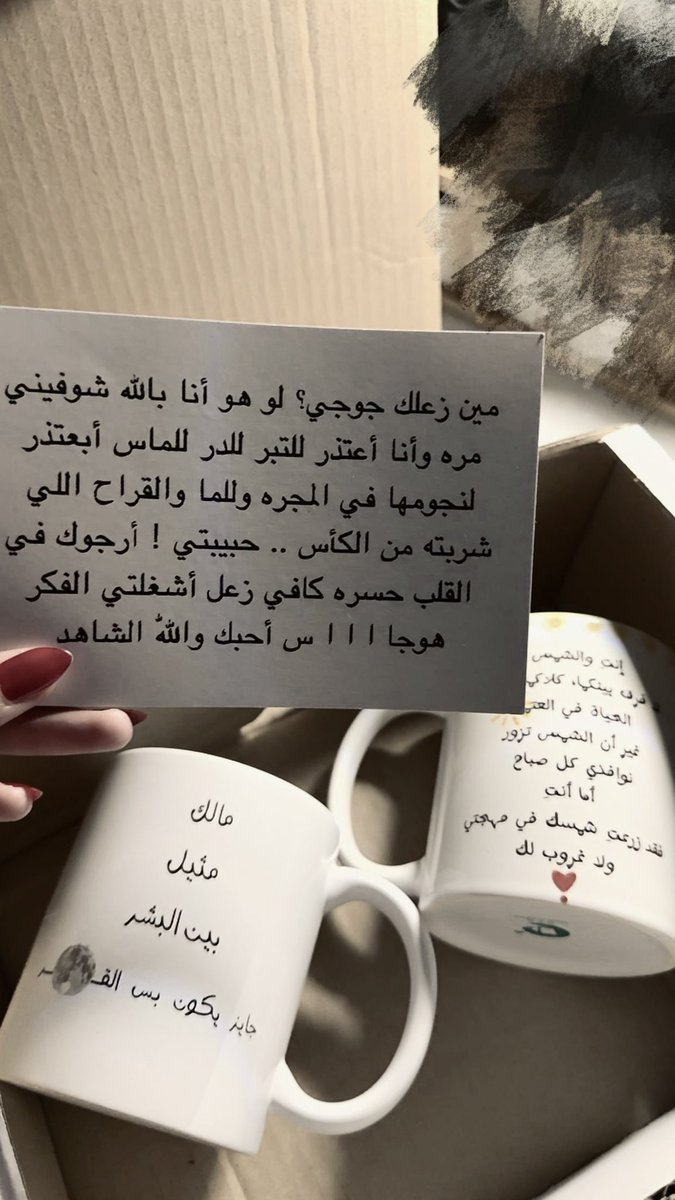 مين زعلك جوجي؟ لو هو أنا بالله شوفيني
مره وأنا أعتذر للتبر للدر للماس أبعتذر
لنجومها في المجره وللما والقراح اللي
شربته من الكأس .. حبيبتي ! أرجوك في
القلب حسره كافي زعل أشغلتي الفكر
هوجا ا ا ا س أحبك واللهُ الشاهد
إنتِ والشمس
فرق بينكما، كلاكما
الحياة في
غير أن الشمس تزور
نوافذي كل صباح
أما أنتِ
فقد زرعتِ شمسك في مهجتي
ولا غروب لك
مالك
مثيل
بين البشر
جايز يكون بس